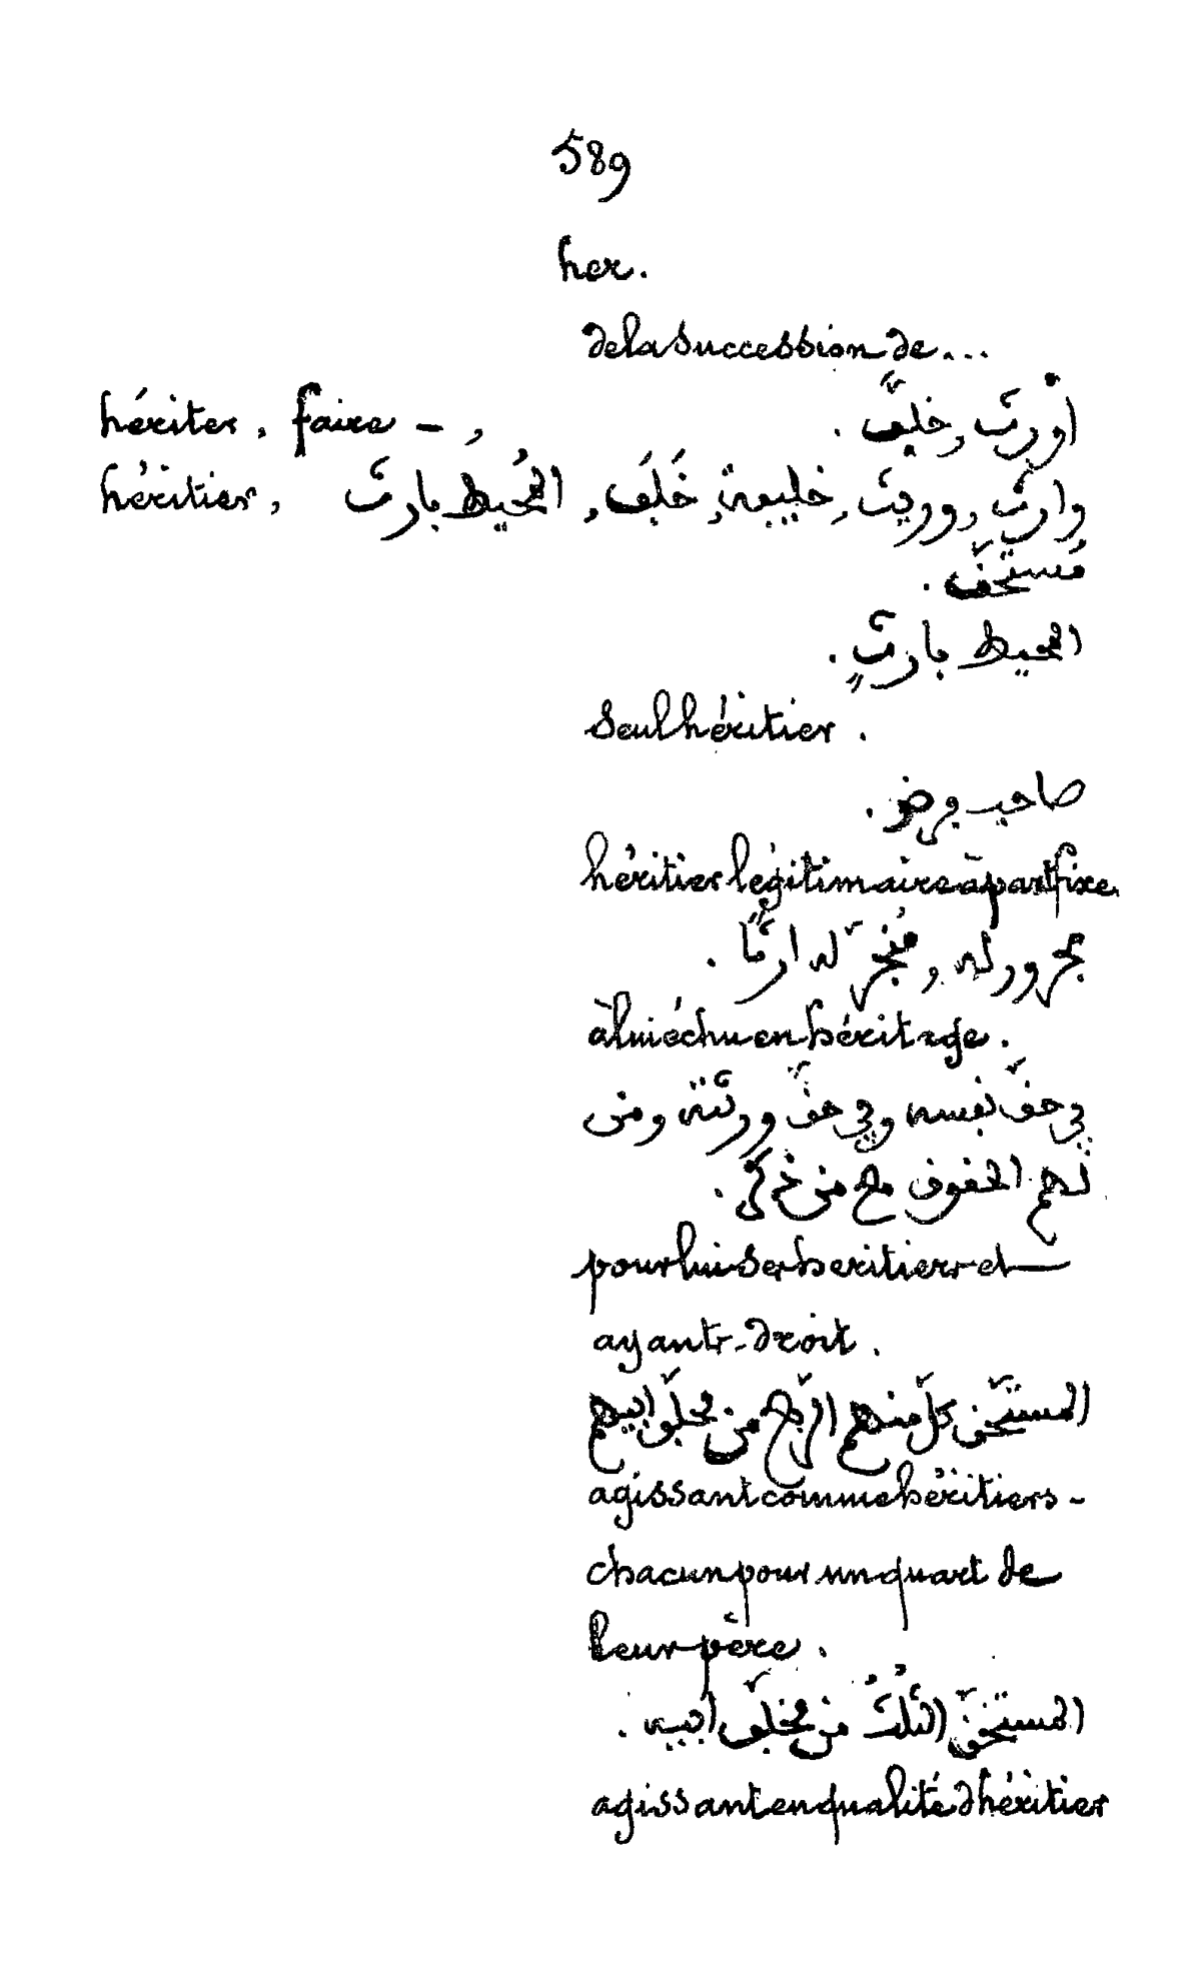 589
her.
de la succession de...
hériter, faire –, أورث, خلّف .
héritier, وارث, ووريث, خليفة, خَلَف, المُحيط بارث
مُستحَقّ .
المحيط بارثٍ .
Seul héritier .
صاحب فرض .
héritier légitimaire à part fixe.
مجرور له, ومُنْجَرّ له ارثًا .
à lui échu en héritage .
في حقّ نفسه وفي حقّ ورثته ومن
لهم الحقوق مع من ذكر .
pour lui ses heritiers et
ayants-droit .
المستحَقّ كلّ منهم الربع من مخلّف ابيهم
agissant comme héritiers -
chacun pour un quart de
leur père .
المستحَقّ الثُلُث من مخلّف ابيه .
agissant en qualité d'héritier